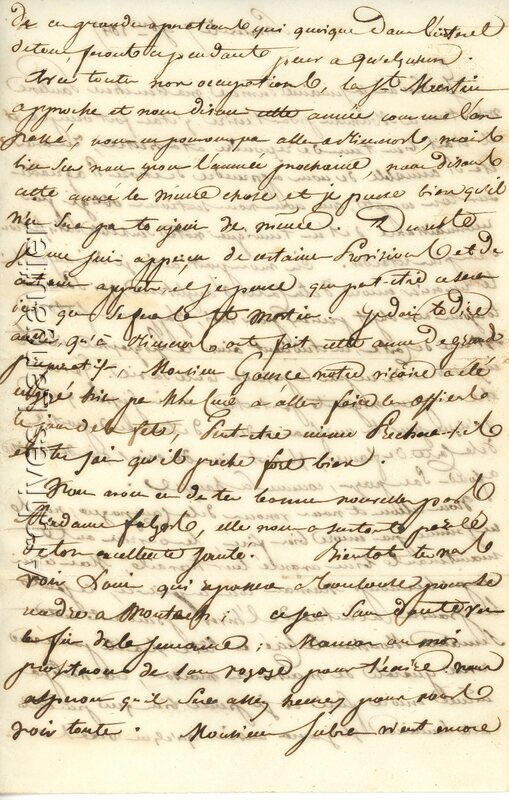 de ces grandes operations qui quoique dans l'interet
feront cependant peur a quelqu'un.
Avec toutes nos occupations la St Martin
approche et nous disons cette année comme l'an
passé, nous ne pourrons pas aller a Rimont, mais
bien sur nous irons l'année prochaine nous disons
cette année la même chose et je pense bien qu'il
n'en sera pas toujours de même. Du reste
je me suis apperçu de certaines Provisions et de
certains apprets et je pense que peut-etre ce sera
ici que se fera la St Martin. Je dois te dire
aussi, qu'à Rimont ont fait cette année de grands
preparatifs, Monsieur notre vicaire a été
hier par Mr le Curé a aller faire les offices
le jour de la fete, Peut-etre même Prechera-t-il
et tu sais qu'il preche fort bien.
Nous avons eu de tes bonnes nouvelles par
Madame elle nous a surtout parlé
de ton excellente santé. Bientot tu vas
voir Louis qui repassera a Toulouse pour se
rendre a ce sera sans doute vers
la fin de la semaine; Maman ou moi
profiterons de son voyage pour t'écrire nous
esperons qu'il sera assez heureux pour vous
voir toutes. Monsieur vient encore
Archives Manuscrites